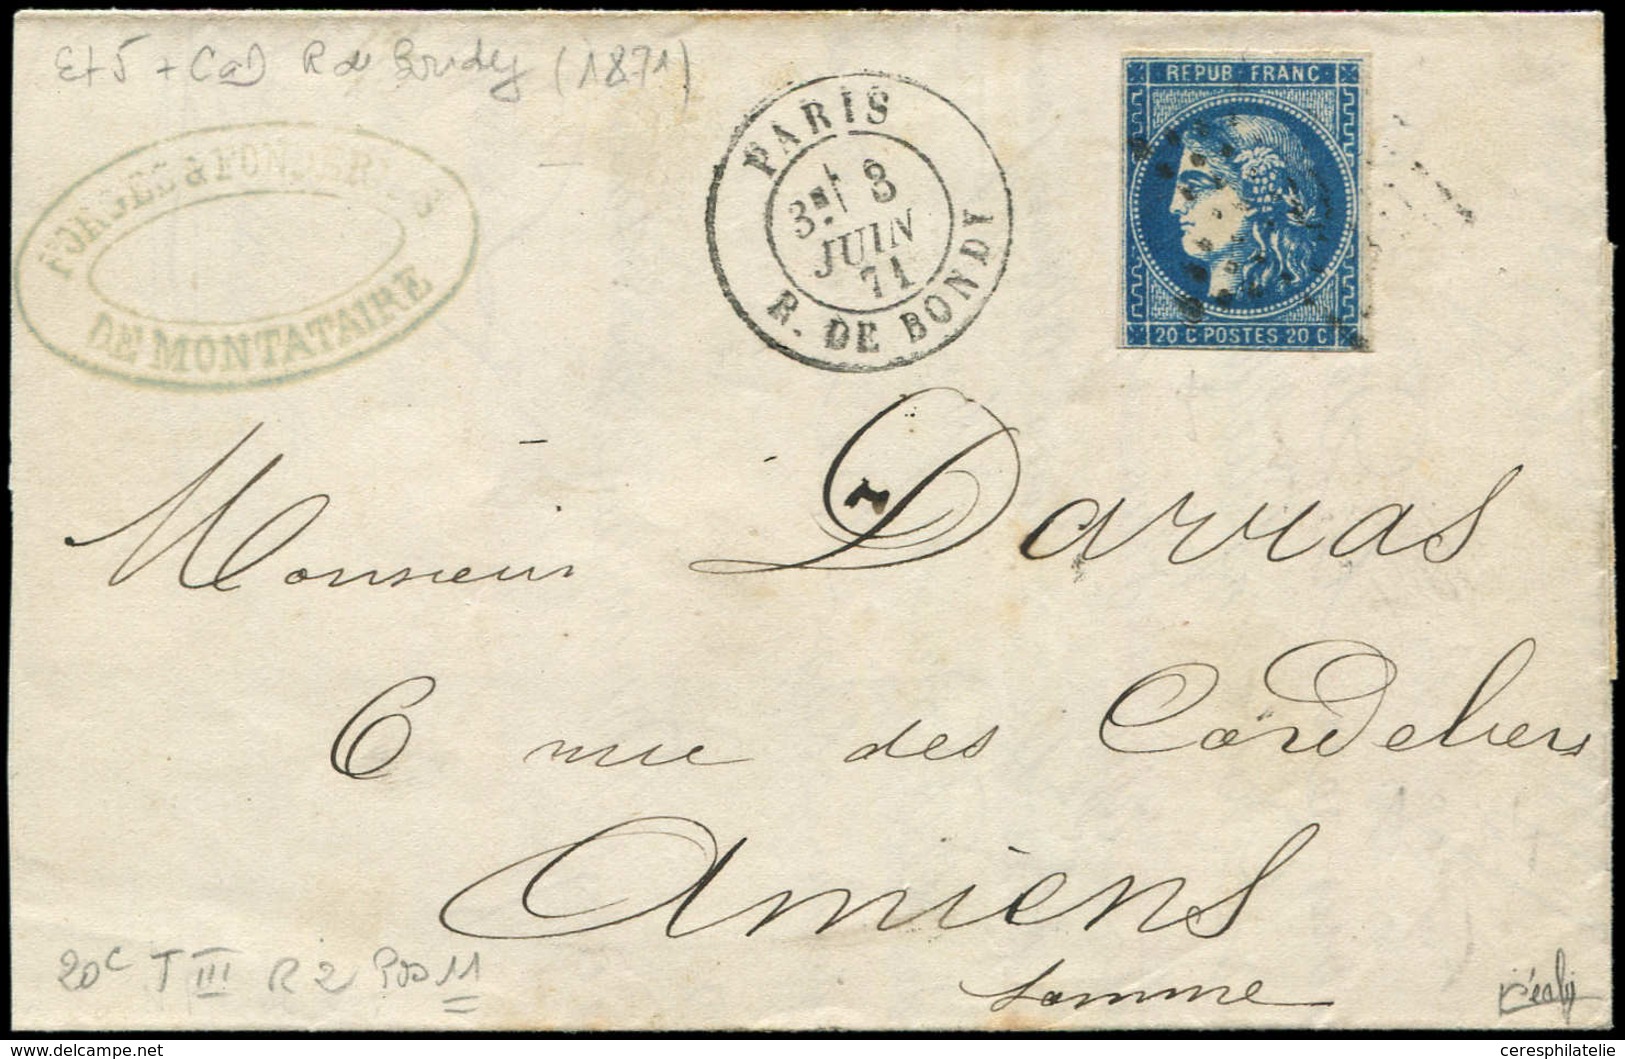 Et 5 + CaD R de Bondy (1871)
FORGES & FONDERIES
DE MONTATAIRE
PARIS
3E/ 8
JUIN
71
R. DE BONDY
REPUB. FRANC.
20 C POSTES 20 C
Monsieur Darras
6 rue des Cordeliers
Amiens
Somme
20c T III R 2 Pos 11
ceresphilatelie